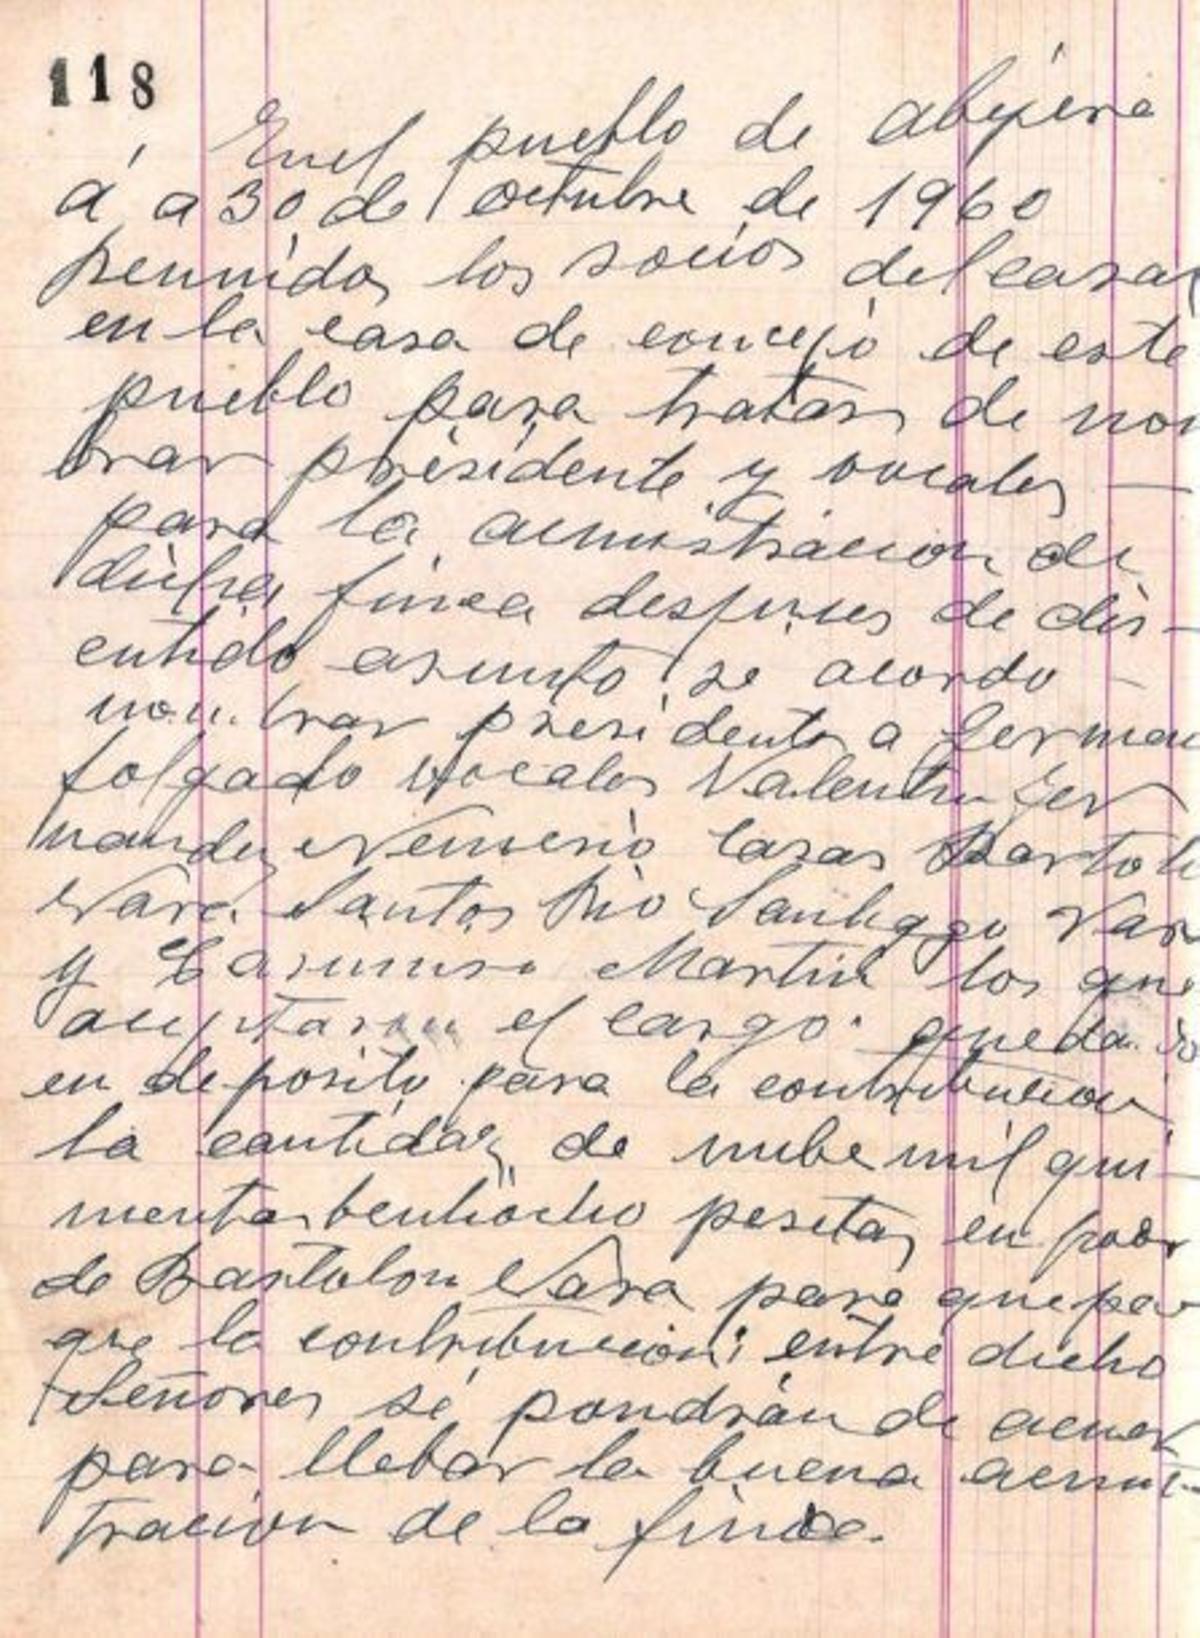 118
En el pueblo de abejera
á a 30 de octubre de 1960
Reunidos los socios del casal
en la casa de concejo de este
pueblo para tratar de nom
brar presidente y vocales
para la acmistracion de
dicha finca despues de dis-
cutido asunto se acordo
nombrar presidente a German
folgado vocales Valentin fer
nandez Nemesio Casas Bartolo
Vara Santos Rio Santiago Vara
y Casimiro Martin los que
aceptaron el cargo. quedando
en deposito para la contribucion
la cantidaz de nube mil qui
nientas bentiocho pesetas en poder
de Bartolon Vara para que pa
gue la contribucion: entre dicho
Señores sé pondrán de acuer
para llebar la buena acmis-
tracion de la finca.